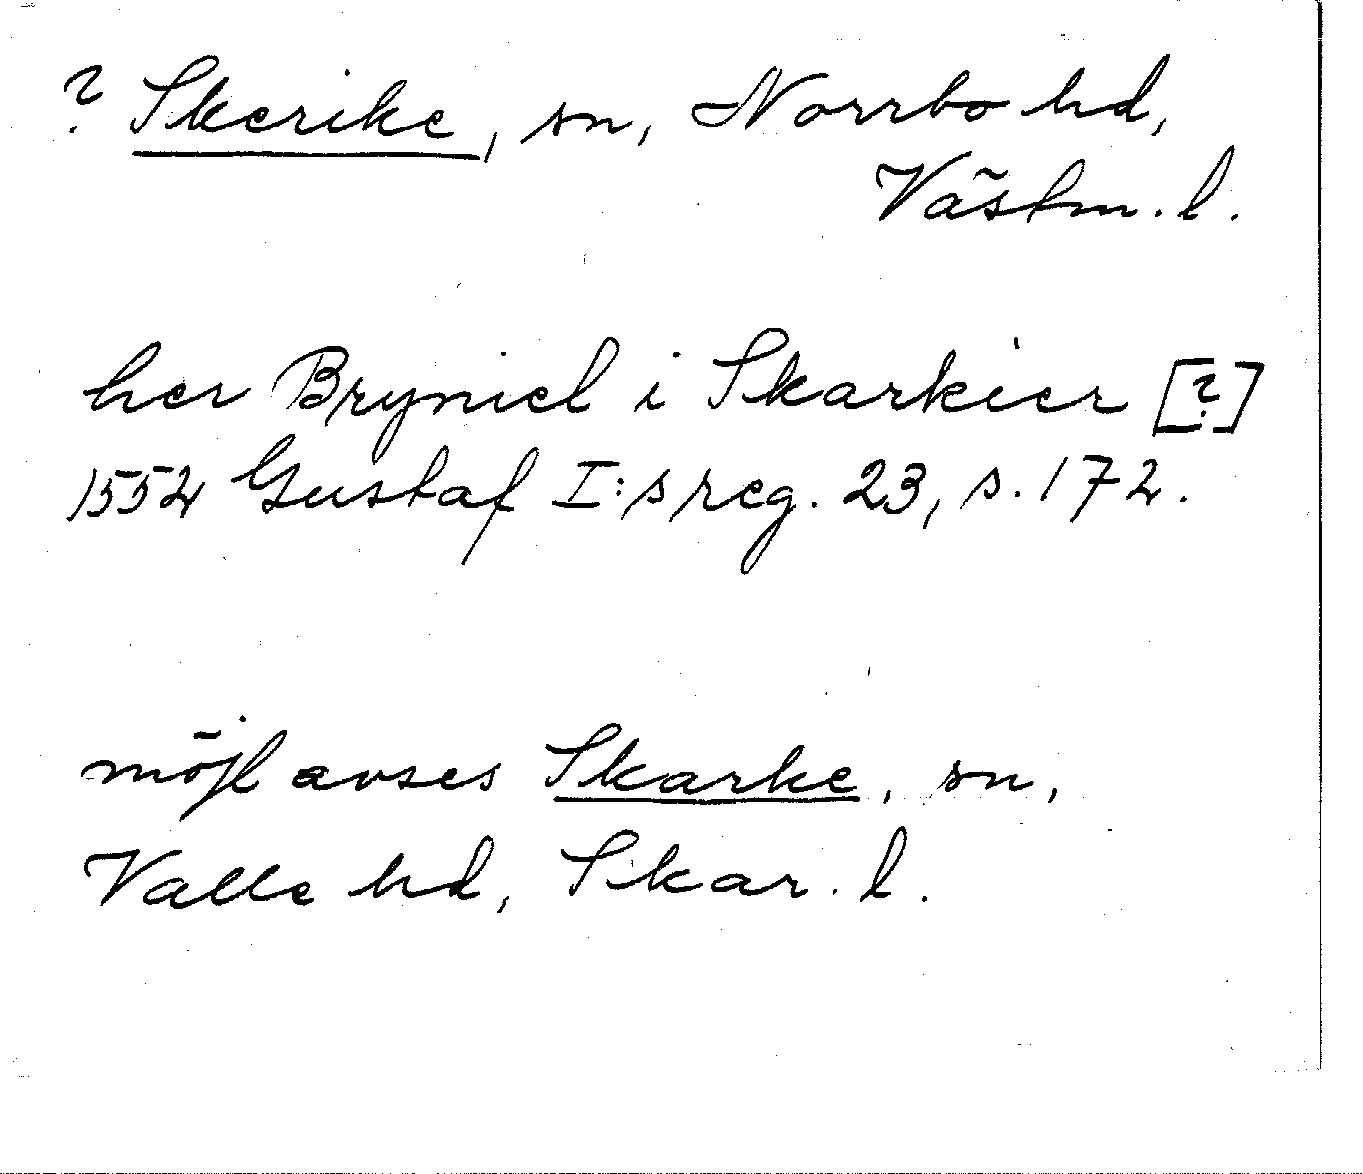 ? Skerike, sn, Norrbo hd,
Västm. l.
her Bryniel i Skarkier [?]
1552 Gustaf I:s reg. 23, s. 172.
möjl avses Skarke, sn,
Valle hd, Skar. l.